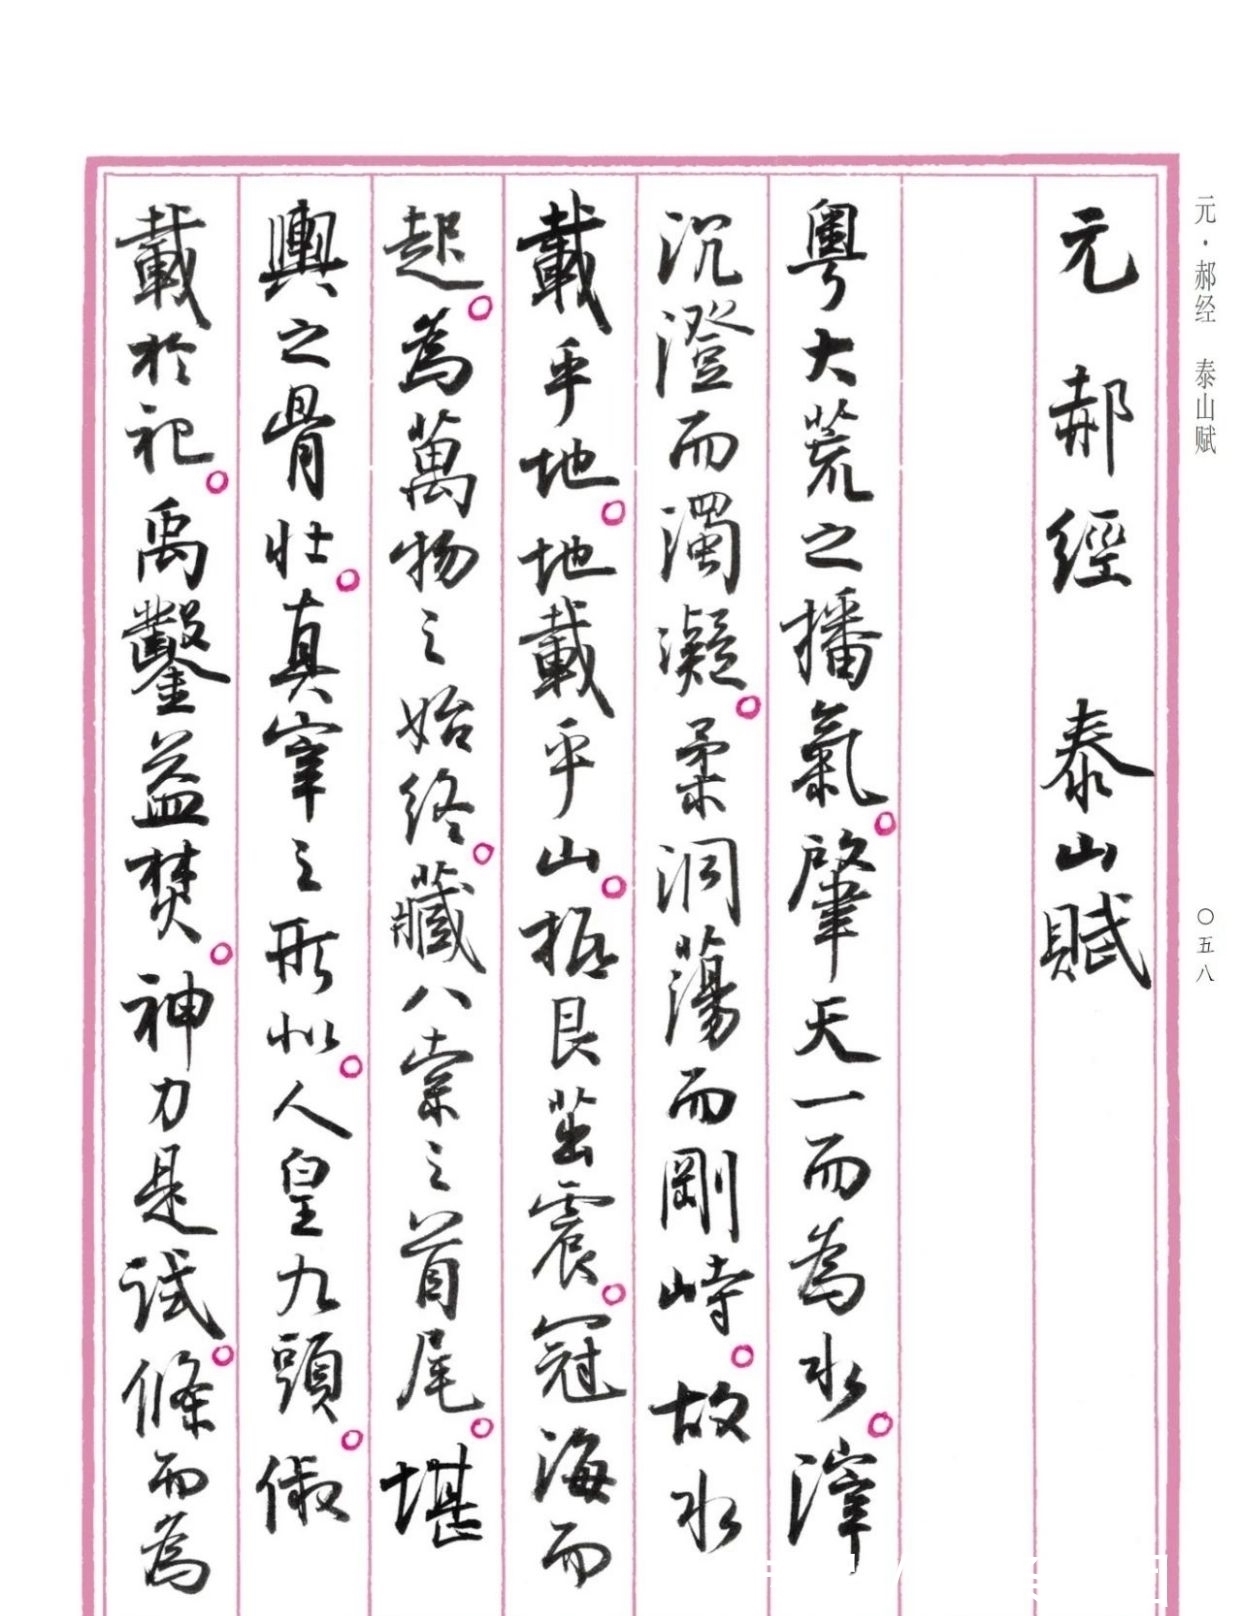 元·郝经 泰山赋
〇五八
元 郝經 泰山賦
粤大荒之播氣。肇天一而為水。滓
沉澄而濁凝。柔洞蕩而剛峙。故水
載乎地。地載乎山。振艮茁震。冠海而
起。為萬物之始終。藏八紘之首尾。堪
輿之骨壯。真宰之形似。人皇九頭。俶
載於祀。禹鑿益焚。神力是試。條而為